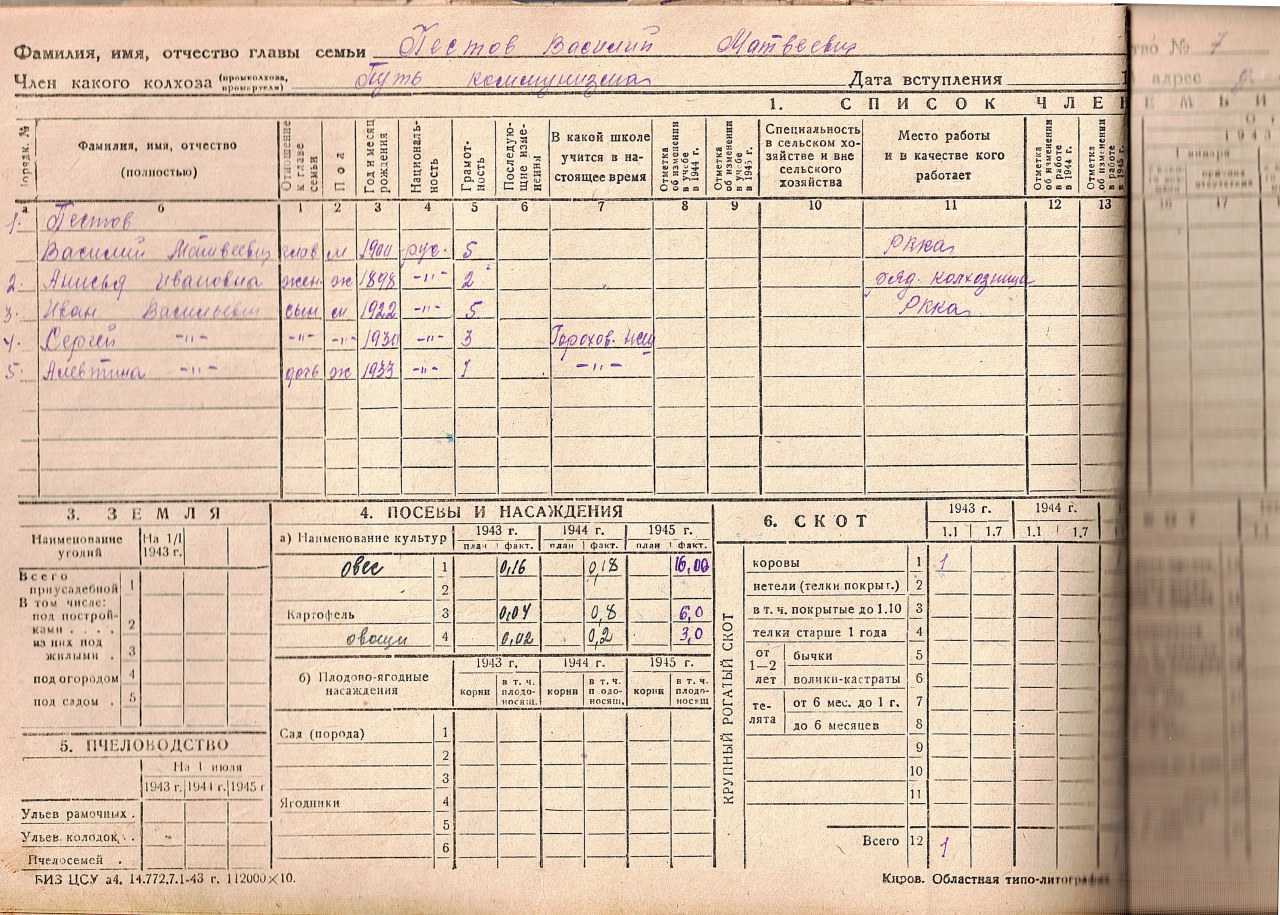 Фамилия, имя, отчество главы семьи Пестов Василий Матвеевич
Член какого колхоза (промколхоза, промартели) Путь коммунизма Дата вступления
1. СПИСОК ЧЛЕ
№ Фамилия, имя, отчество (полностью) Отношение к главе семьи Пол Год и месяц рождения Националь-ность Грамот-ность Последую-щие изме-нения В какой школе учится в на-стоящее время Отметка об изменении в учебе в 1944 г. Отметка об изменении в учебе в 1945 г. Специальность в сельском хо-зяйстве и вне сельского хозяйства Место работы и в качестве кого работает Отметка об изменении в работе в 1944 г. Отметка об изменении в работе в 1945 г.
а б 1 2 3 4 5 6 7 8 9 10 11 12 13
1. Пестов
Василий Матвеевич глав м 1900 рус. 5 РККа
2. Анисья Ивановна жен. ж 1898 -"- 2 ряд. колхозница
3. Иван Васильевич сын м 1922 -"- 5 РККа
4. Сергей -"- -"- -"- 1930 -"- 3 Горохов. нсш
5. Алевтина -"- дочь ж 1933 -"- 1 -"-
3. ЗЕМЛЯ
Наименование угодий На 1/I 1943 г.
Всего приусадебной 1
В том числе: под построй-ками . . . . 2
из них под жилыми . 3
под огородом 4
под садом . 5
5. ПЧЕЛОВОДСТВО
На 1 июля
1943 г. 1944 г. 1945 г
Ульев рамочных .
Ульев. колодок .
Пчелосемей .
4. ПОСЕВЫ И НАСАЖДЕНИЯ
а) Наименование культур 1943 г. 1944 г. 1945 г.
план факт. план факт. план факт.
овес 1 0,16 0,18 16,00
2
Картофель 3 0,04 0,8 6,0
овощи 4 0,02 0,2 3,0
б) Плодово-ягодные насаждения 1943 г. 1944 г. 1945 г.
корни в т. ч. плодо-носящ. корни в т. ч. плодо-носящ. корни в т. ч. плодо-носящ
Сад (порода) 1
2
3
Ягодники 4
5
6
6. СКОТ 1943 г. 1944 г.
1.1 1.7 1.1 1.7
КРУПНЫЙ РОГАТЫЙ СКОТ
коровы 1 1
нетели (телки покрыт.) 2
в т. ч. покрытые до 1.10 3
телки старше 1 года 4
от 1—2 лет бычки 5
волики-кастраты 6
те-лята от 6 мес. до 1 г. 7
до 6 месяцев 8
9
10
11
Всего 12 1
БИЗ ЦСУ а4. 14.772.7.1-43 г. 112000×10.
Киров. Областная типо-литограф
№ 7
адрес
1943
января
16 17